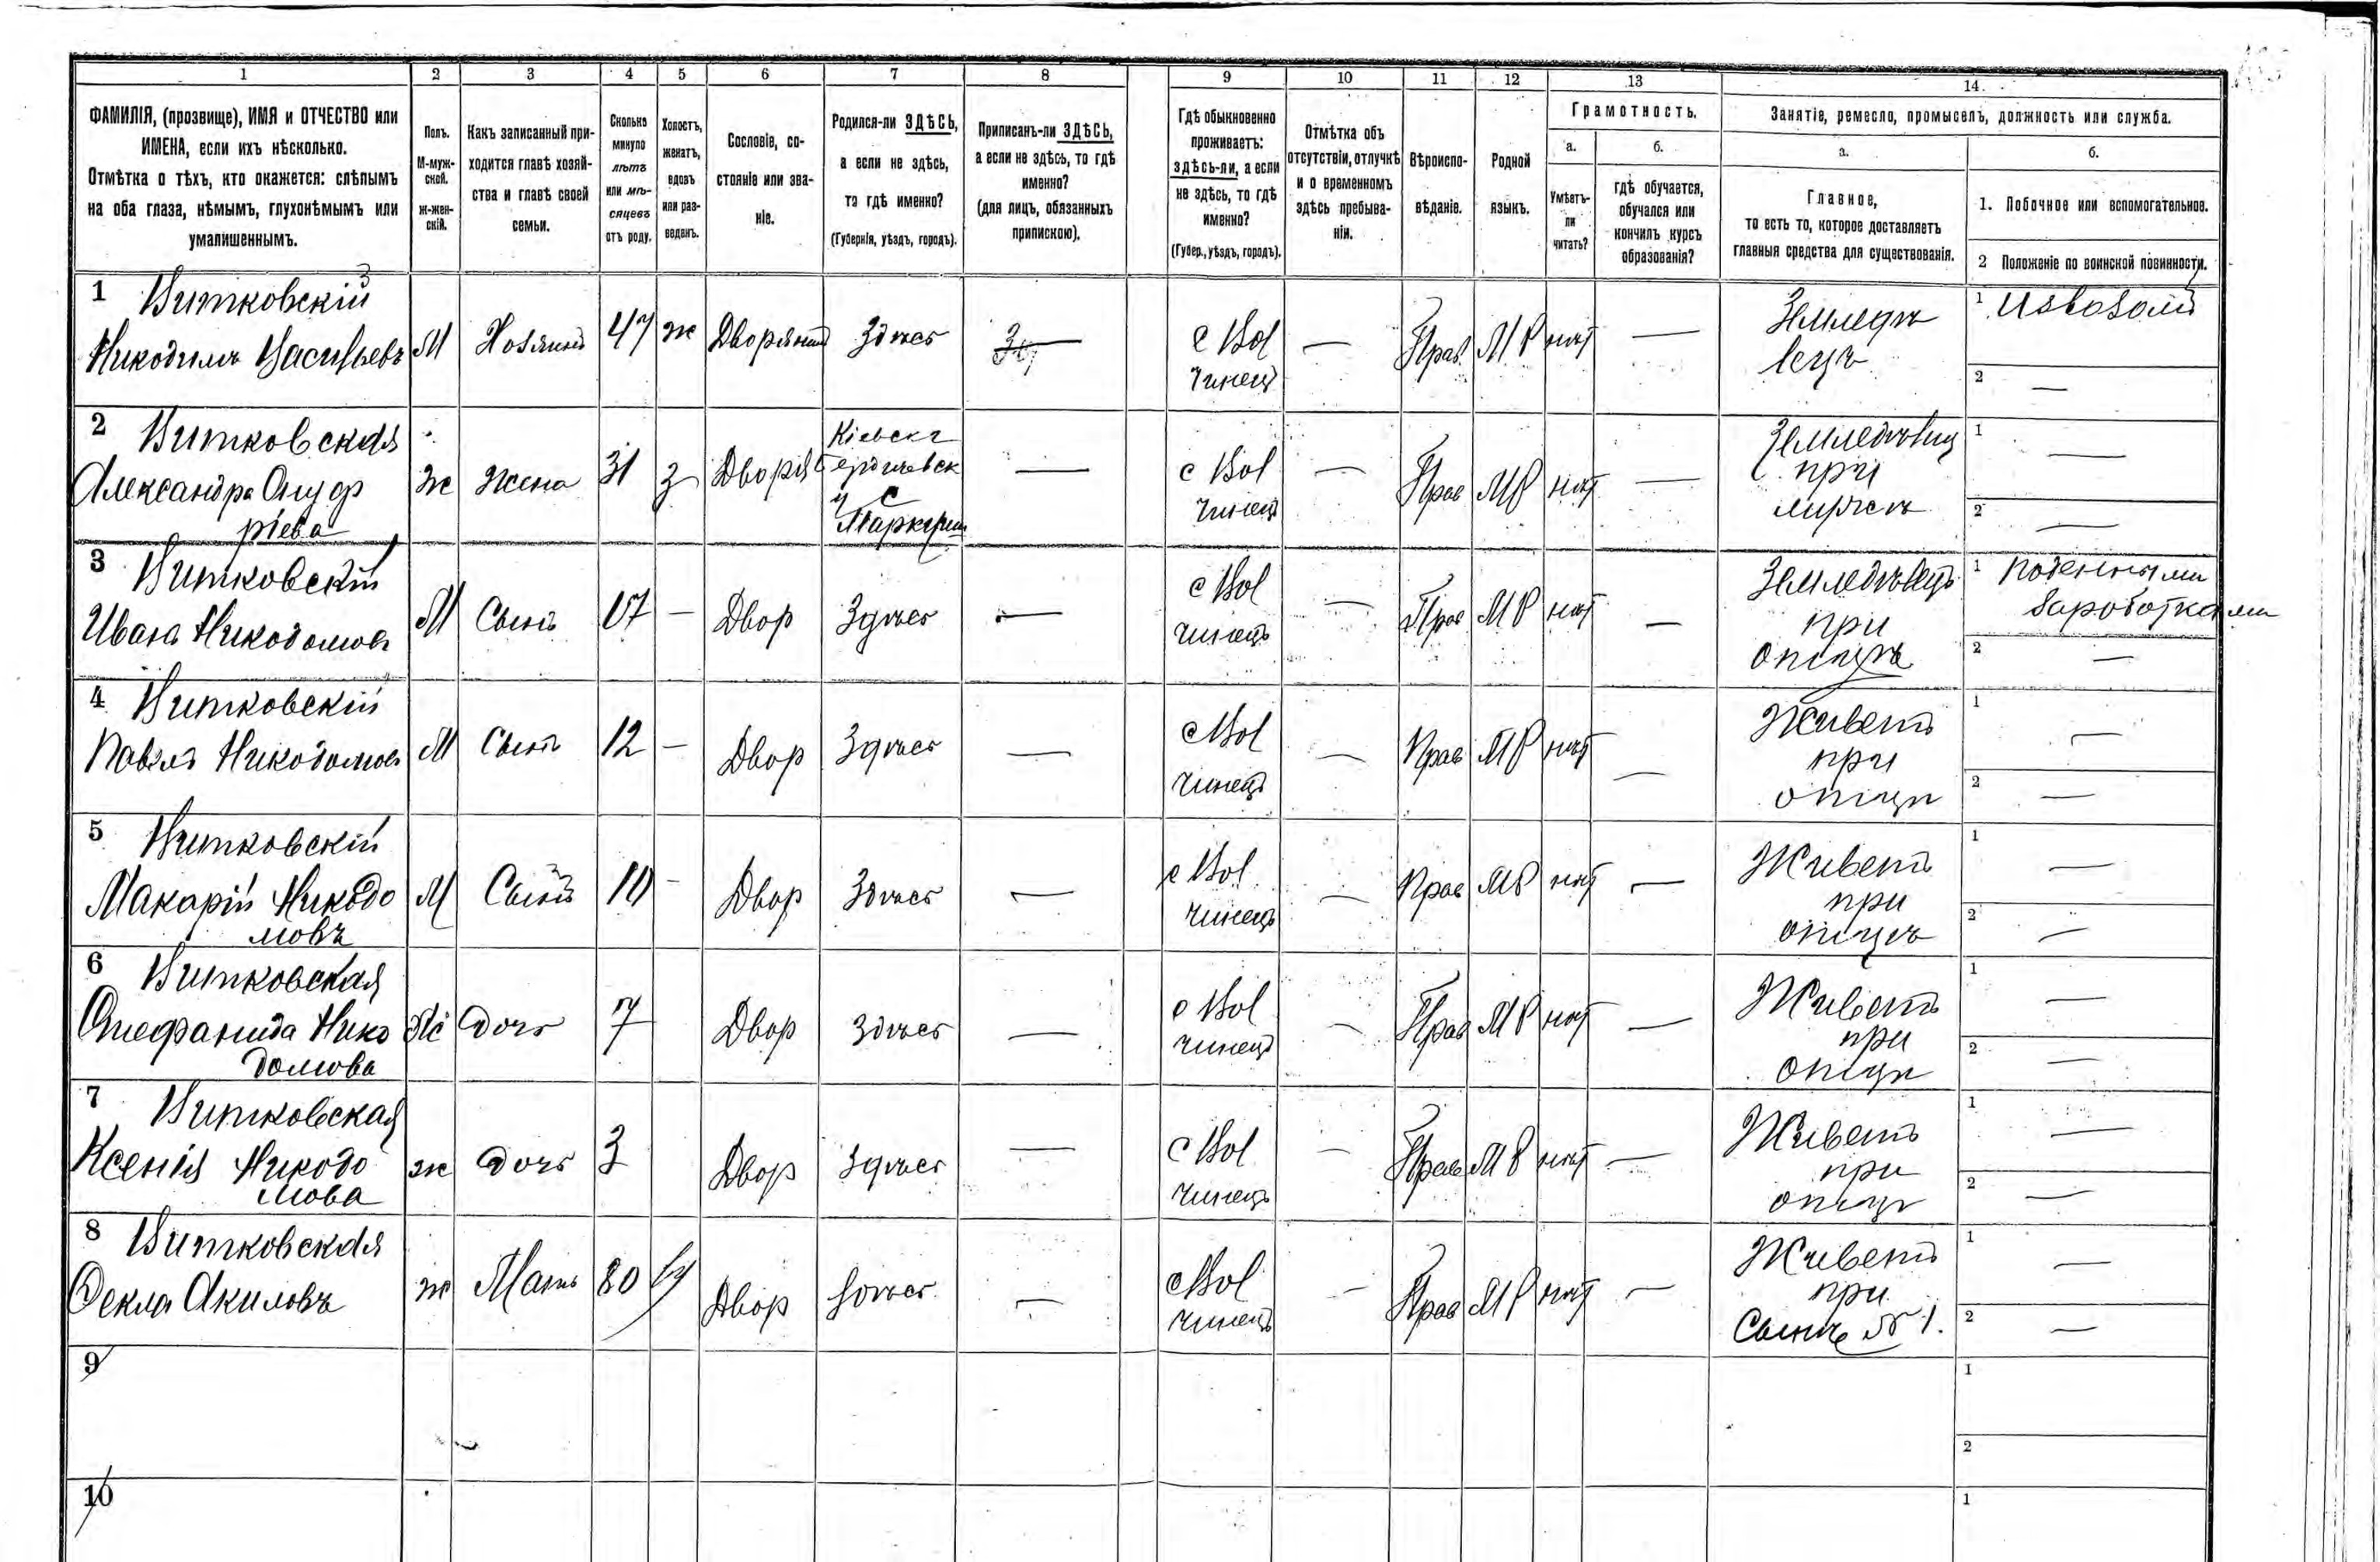 1 2 3 4 5 6 7 8 9 10 11 12 13 14
ФАМИЛІЯ, (прозвище), ИМЯ и ОТЧЕСТВО или
ИМЕНА, если ихъ нѣсколько.
Отмѣтка о тѣхъ, кто окажется: слѣпымъ
на оба глаза, нѣмымъ, глухонѣмымъ или
умалишеннымъ.
Полъ.
М-муж-
ской.
Ж-жен-
скій.
Какъ записанный при-
ходится главѣ хозяй-
ства и главѣ своей
семьи.
Сколько
минуло
лѣтъ
или мѣ-
сяцевъ
отъ роду.
Холостъ,
женатъ,
вдовъ
или раз-
веденъ.
Сословіе, со-
стояніе или зва-
ніе.
Родился-ли ЗДѢСЬ,
а если не здѣсь,
то гдѣ именно?
(Губернія, уѣздъ, городъ).
Приписанъ-ли ЗДѢСЬ,
а если не здѣсь, то гдѣ
именно?
(для лицъ, обязанныхъ
припискою).
Гдѣ обыкновенно
проживаетъ:
здѣсь-ли, а если
не здѣсь, то гдѣ
именно?
(Губер., уѣздъ, городъ).
Отмѣтка объ
отсутствіи, отлучкѣ
и о временномъ
здѣсь пребыва-
ніи.
Вѣроиспо-
вѣданіе.
Родной
языкъ.
Грамотность.
а.
Умѣетъ-
ли
читать?
б.
гдѣ обучается,
обучался или
кончилъ курсъ
образованія?
Занятіе, ремесло, промыселъ, должность или служба.
а.
Главное,
то есть то, которое доставляетъ
главныя средства для существованія.
б.
1. Побочное или вспомогательное.
2 Положеніе по воинской повинности.
1 Витковскій
Никодимъ Васильевъ М Хозяинъ 47 ж Дворянинъ Здѣсь
с Вол
чинецъ — Прав М Р нѣт —
Земледѣ
лецъ
1 Извозом
2 —
2 Витковская
Александра
ріева
ж жена 31 з Дворя
Кіевск
Бердичевск
у с
—
с Вол
чинецъ — Прав МР нѣт —
Земледѣлец
при
1 —
2 —
3 Витковскій
Иванъ Никодомовъ М Сынъ 17 — Двор Здѣсь —
с Вол
чинецъ — Прав М Р нѣт —
Земледѣлецъ
при
отцѣ
1 Поденными
заработками
2 —
4 Витковскій
Павелъ Никодомовъ М Сынъ 12 — Двор Здѣсь —
с Вол
чинецъ — Прав М Р нѣт —
Живетъ
при
отцѣ
1 —
2 —
5 Витковскій
Макарій Никодо
мовъ
М Сынъ 10 — Двор Здѣсь —
с Вол
чинецъ — Прав МР нѣт —
Живетъ
при
отцѣ
1 —
2 —
6 Витковская
Нико
домова
Ж дочь 7 Двор здѣсь —
с Вол
чинецъ — Прав М Р нѣт —
Живетъ
при
отцѣ
1 —
2 —
7 Витковская
Ксенія Никодо
мова
ж дочь 3 Двор здѣсь —
с Вол
чинецъ — Прав М Р нѣт —
Живетъ
при
отцѣ
1 —
2 —
8 Витковская
Фекла Акиловъ ж Мать 80 Двор здѣсь —
с Вол
чинецъ — Прав М Р нѣт —
Живетъ
при
Сынѣ № 1.
1 —
2 —
9
1
2
10
1